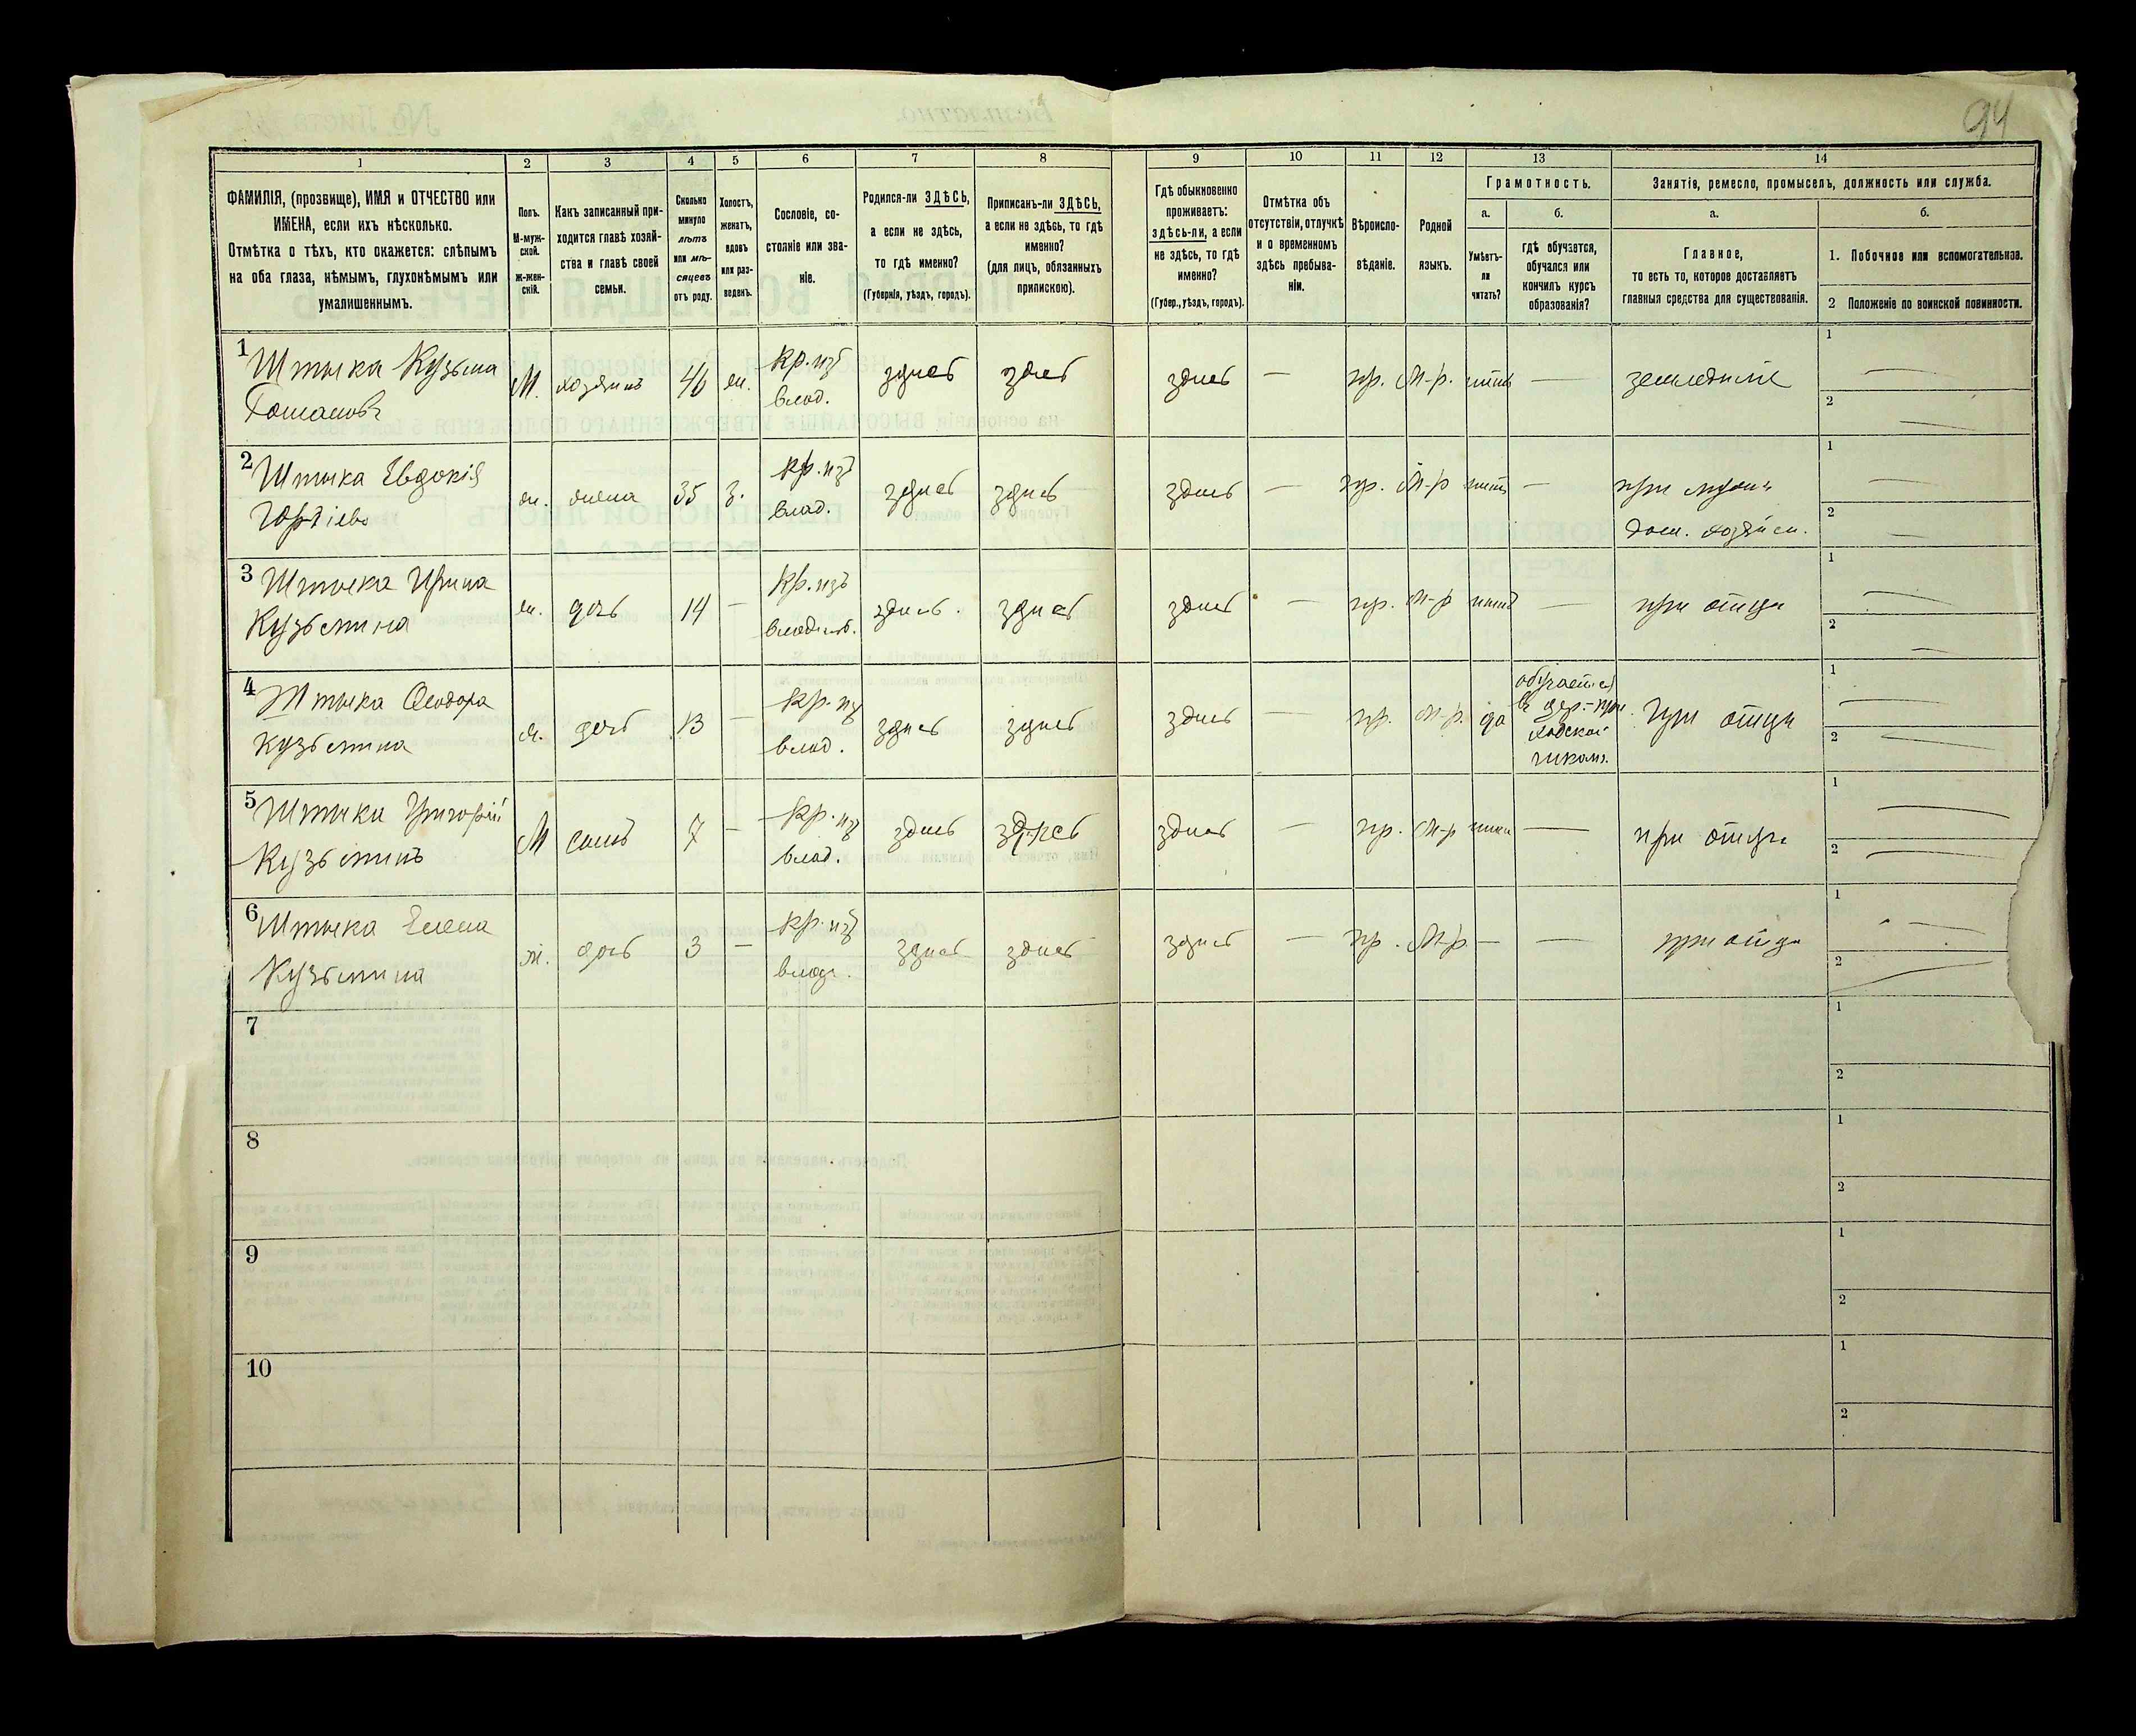 94
1 2 3 4 5 6 7 8 9 10 11 12 13 14
ФАМИЛІЯ, (прозвище), ИМЯ и ОТЧЕСТВО или
ИМЕНА, если ихъ нѣсколько.
Отмѣтка о тѣхъ, кто окажется: слѣпымъ
на оба глаза, нѣмымъ, глухонѣмымъ или
умалишеннымъ.
Полъ.
М-муж-
ской.
Ж-жен-
скій.
Какъ записанный при-
ходится главѣ хозяй-
ства и главѣ своей
семьи.
Сколько
минуло
лѣтъ
или мѣ-
сяцевъ
отъ роду.
Холостъ,
женатъ,
вдовъ
или раз-
веденъ.
Сословіе, со-
стояніе или зва-
ніе.
Родился-ли ЗДѢСЬ,
а если не здѣсь,
то гдѣ именно?
(Губернія, уѣздъ, городъ).
Приписанъ-ли ЗДѢСЬ,
а если не здѣсь, то гдѣ
именно?
(для лицъ, обязанныхъ
припискою).
Гдѣ обыкновенно
проживаетъ:
здѣсь-ли, а если
не здѣсь, то гдѣ
именно?
(Губер., уѣздъ, городъ).
Отмѣтка объ
отсутствіи, отлучкѣ
и о временномъ
здѣсь пребыва-
ніи.
Вѣроиспо-
вѣданіе.
Родной
языкъ.
Грамотность.
а.
Умѣетъ-
ли
читать?
б.
гдѣ обучается,
обучался или
кончилъ курсъ
образованія?
Занятіе, ремесло, промыселъ, должность или служба.
а.
Главное,
то есть то, которое доставляетъ
главныя средства для существованія.
б.
1. Побочное или вспомогательное.
2 Положеніе по воинской повинности.
1 Штыка Кузьма
М. хозяинъ 46 ж. Кр. изъ
влад. здѣсь здѣсь здѣсь — пр. М-р. нѣтъ — земледѣліе 1 —
2 —
2 Штыка Евдокія
ж. жена 35 з. Кр. изъ
влад. здѣсь здѣсь здѣсь — пр. М-р нѣтъ — при мужѣ
дом. хозяйн. 1 —
2 —
3 Штыка Ирина
Кузьмина ж. дочь 14 — Кр. изъ
здѣсь. здѣсь здѣсь — пр. М-р нѣтъ — при отцѣ 1 —
2 —
4 Штыка Ѳеодора
Кузьмина ж. дочь 13 — Кр. из
влад. здѣсь здѣсь здѣсь — пр. М-р. да обучается
в цер.-при
ходской
школѣ. при отцѣ 1 —
2 —
5 Штыка Григорій
Кузьминъ М сынъ 7 — Кр. из
влад. здѣсь здѣсь здѣсь — пр. М-р нѣтъ — при отцѣ 1 —
2 —
6 Штыка Елена
Кузьмина ж. дочь 3 — Кр. изъ
влад. здѣсь здѣсь здѣсь — пр. М-р. — — при отцѣ 1 —
2 —
7 1
2
8 1
2
9 1
2
10 1
2